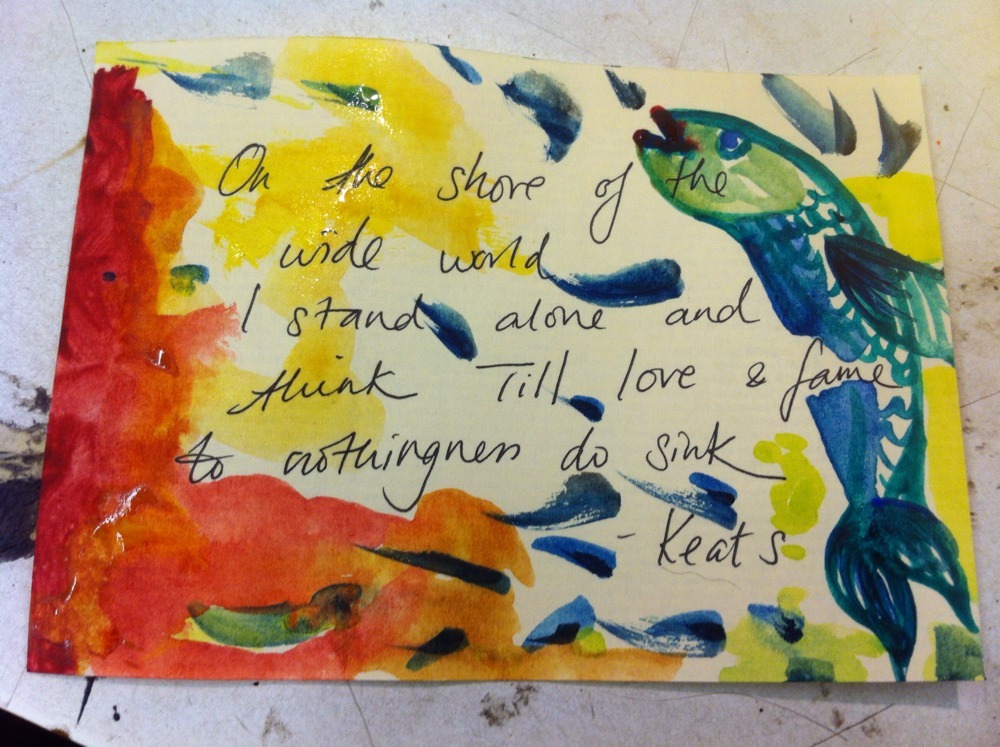 On the shore of the
wide world
I stand alone and
think Till love & fame
to nothingness do sink
- Keats